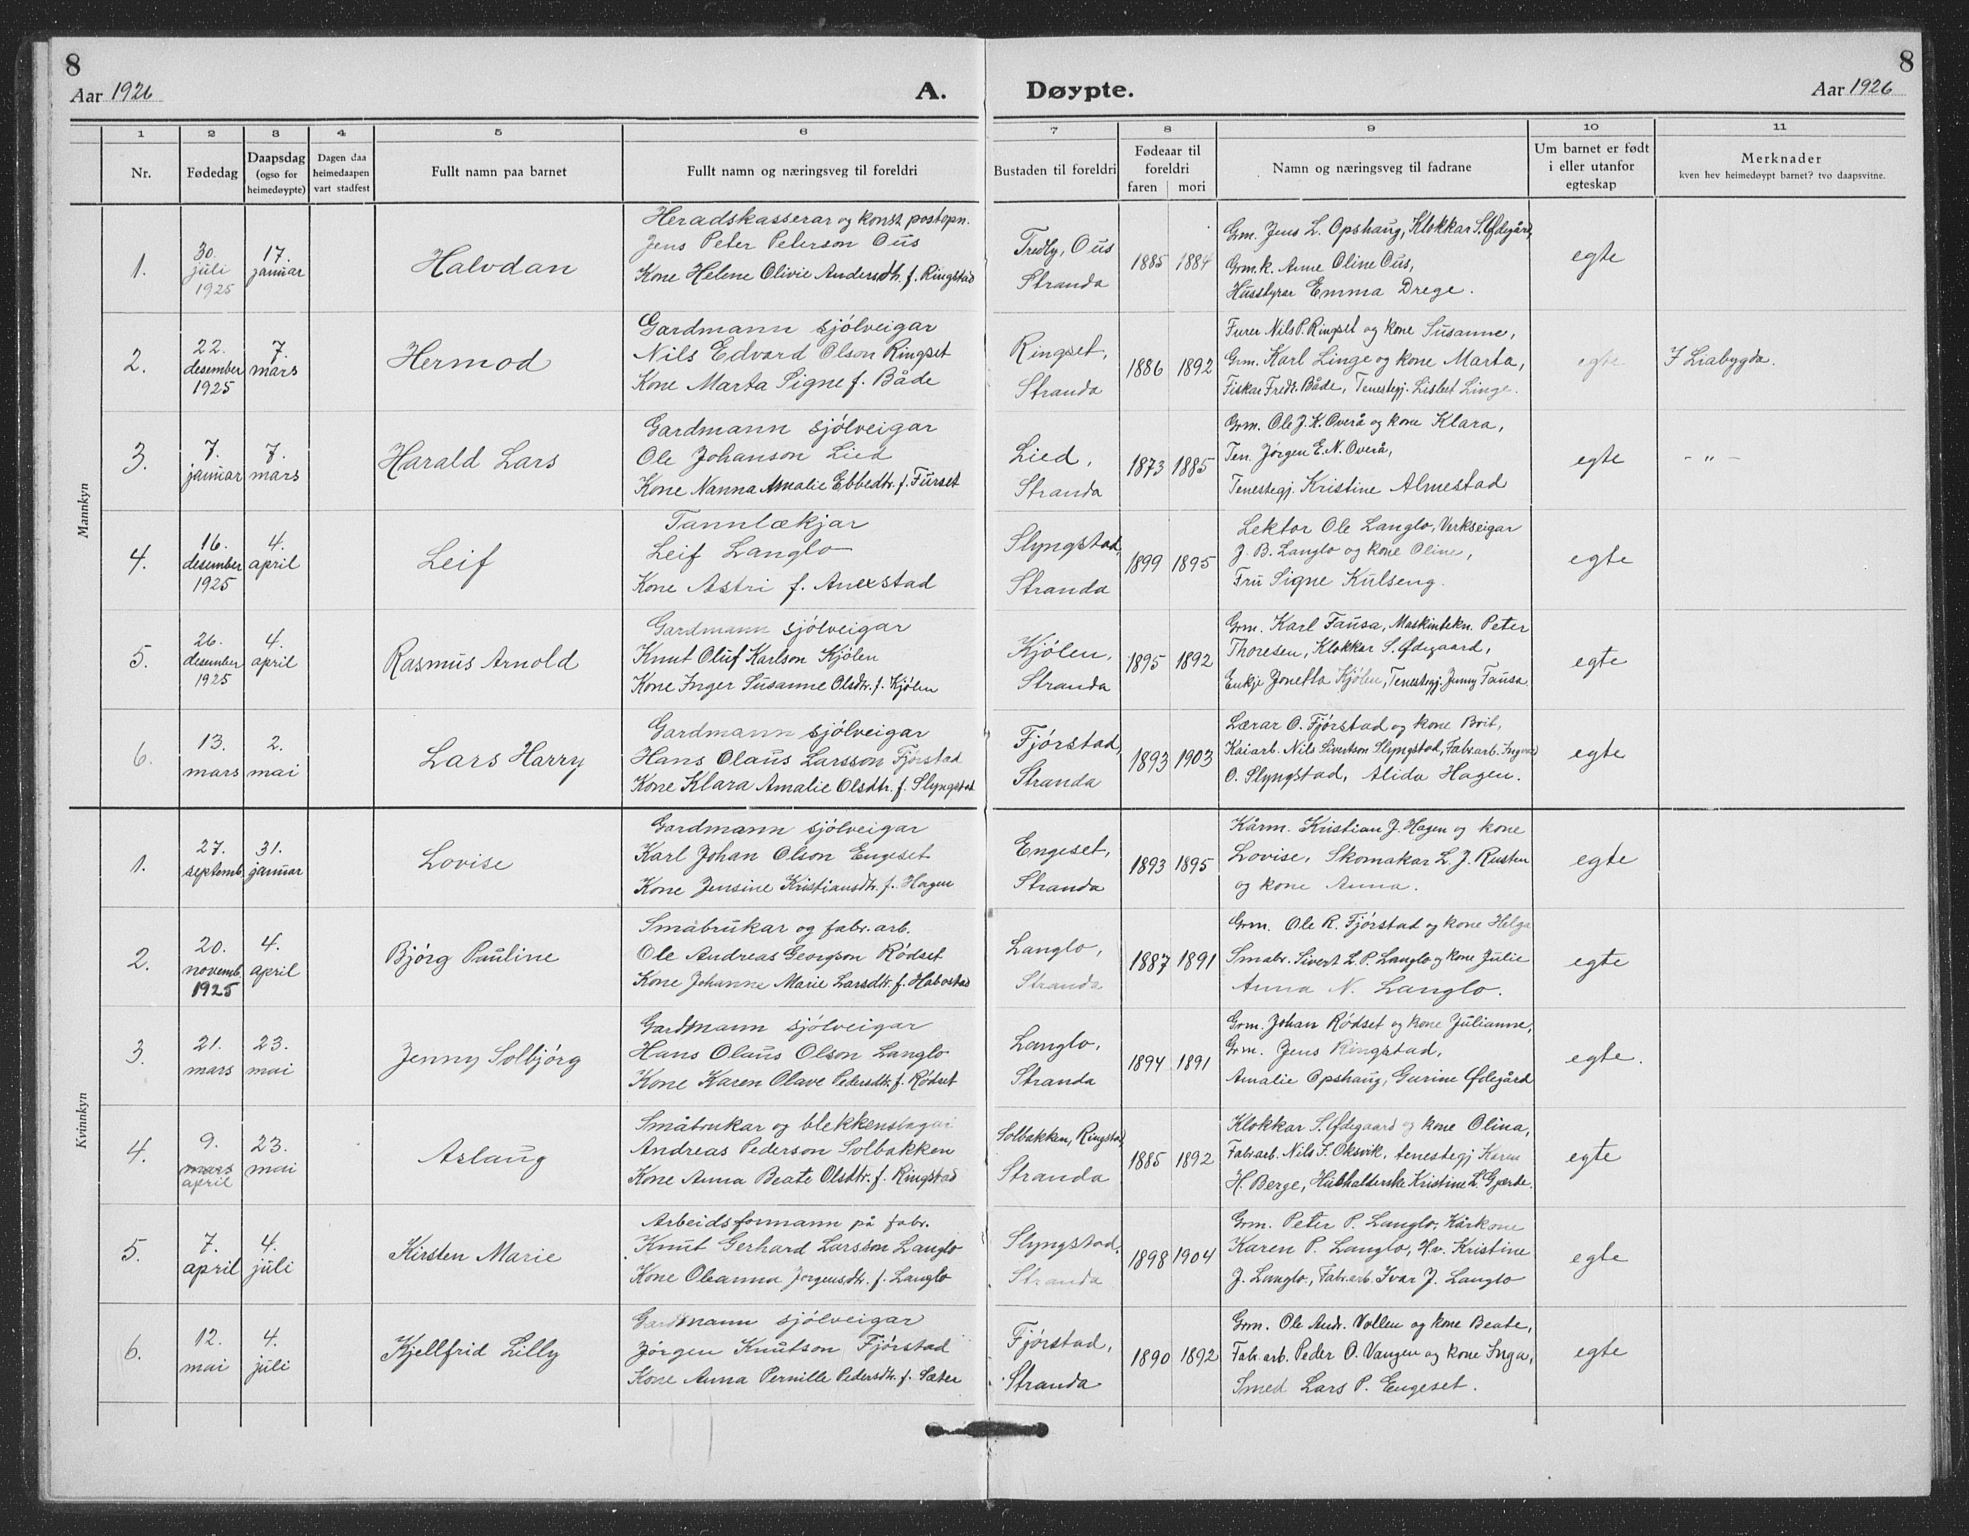 8
8
Aar 1926
A.
Døypte.
Aar 1926
1 2 3 4 5 6 7 8 9 10 11
Nr.
Fødedag
Daapsdag (ogso for heimedøypte)
Dagen daa heimedaapen vart stadfest
Fullt namn paa barnet
Fullt namn og næringsveg til foreldri
Bustaden til foreldri
Fødeaar til foreldri
faren mori
Namn og næringsveg til fadrane
Um barnet er født i eller utanfor egteskap
Merknader
kven hev heimedøypt barnet? tvo daapsvitne.
Mannkyn
1.
30. juli 1925
17. januar
Halvdan
Heradskasserar og konst postopn.
Jens Peter Peterson Ous
Kone Helene Olivie Andersdtr. f. Ringstad
Tredly, Ous
Stranda
1885 1884
Grm. Jens L. Opshaug, Klokkar S. Ødegård,
Grm.k. Anne Oline Ous,
Husstyrar Emma Drege.
egte
2.
22. desember 1925
7. mars
Hermod
Gardmann sjölveigar
Nils Edvard Olson Ringset
Kone Marta Signe f. Både
Ringset,
Stranda
1886 1892
Furer Nils P. Ringset og kone Susanne,
Grm. Karl Linge og kone Marta,
Fiskar Fredr. Både, Tenestegj. Lisbet Linge.
egte
I Liabygda.
3.
7. januar
7. mars
Harald Lars
Gardmann sjölveigar
Ole Johanson Lied
Kone Nanna Amalie Ebbedtr. f. Furset
Lied,
Stranda
1873 1885
Grm. Ole J. K. Overå og kone Klara,
Ten. Jørgen E. N. Overå,
Tenestegj. Kristine Almestad
egte
- " -
4.
16. desember 1925
4. april
Leif
Tannlækjar
Leif Langlo
Kone Astri f. Anexstad
Slyngstad,
Stranda
1899 1895
Lektor Ole Langlo, Verkseigar
J. B. Langlo og kone Oline,
Fru Signe Kulseng.
egte
5.
26. desember 1925
4. april
Rasmus Arnold
Gardmann sjölveigar
Knut Oluf Karlson Kjölen
Kone Inger Susanne Olsdtr. f. Kjölen
Kjölen,
Stranda
1895 1892
Grm. Karl Fausa, Maskintekn. Peter
Thoresen, Klokkar S. Ødegaard,
Enkje Jonetta Kjölen, Tenestegj. Jenny Fausa
egte
6.
13. mars
2. mai
Lars Harry
Gardmann sjölveigar
Hans Olaus Larsson Fjörstad
Kone Klara Amalie Olsdtr. f. Slyngstad
Fjörstad,
Stranda
1893 1903
Lærar O. Fjörstad og kone Brit,
Kaiarb. Nils Sivertson Slyngstad, Fabr.arb. Ingvar
O. Slyngstad, Alida Hagen.
egte
Kvinnkyn
1.
27. septemb.
31. januar
Lovise
Gardmann sjölveigar
Karl Johan Olson Engeset
Kone Jensine Kristiansdtr. f. Hagen
Engeset,
Stranda
1893 1895
Kårm. Kristian J. Hagen og kone
Lovise, Skomakar L. J. Rusten
og kone Anna.
egte
2.
20. novemb. 1925
4. april
Bjørg Pauline
Småbrukar og fabr. arb.
Ole Andreas Georgson Rödset
Kone Johanne Marie Larsdtr. f. Habostad
Langlo,
Stranda
1887 1891
Grm. Ole R. Fjörstad og kone Helga
Småbr. Sivert L. P. Langlo og kone Julie
Anna N. Langlo.
egte
3.
21. mars
23. mai
Jenny Solbjörg
Gardmann sjölveigar
Hans Olaus Olson Langlo
Kone Karen Olave Pedersdtr. f. Rödset
Langlo,
Stranda
1894 1891
Grm. Johan Rödset og kone Julianne,
Grm. Jens Ringstad,
Amalie Opshaug, Gurine Ødegård
egte.
4.
9. mars april
23. mai
Aslaug
Småbrukar og blekkenslagar
Andreas Pederson Solbakken
Kone Anna Beate Olsdtr. f. Ringstad
Solbakken, Ringstad,
Stranda
1885 1892
Klokkar S. Ødegaard og kone Olina,
Fabr.arb. Nils S. Oksvik, tenestegj Karen
H. Berge, Hushalderske Kristine L. Gjærde.
egte
5.
7. april
4. juli
Kirsten Marie
Arbeidsformann på fabr.
Knut Gerhard Larsson Langlo
Kone Oleanna Jörgensdtr. f. Langlo
Slyngstad,
Stranda
1898 1904
Grm. Peter P. Langlo, Kårkone
Karen P. Langlo, H.v. Kristine
J. Langlo, Fabr.arb. Ivar J. Langlo
egte
6.
12. mai
4. juli
Kjellfrid Lilly
Gardmann sjölveigar
Jørgen Knutson Fjörstad
Kone Anna Pernille Pedersdtr. f. Sæter
Fjörstad,
Stranda
1890 1892
Grm. Ole Andr. Vollen og kone Beate,
Fabr.arb. Peder O. Vangen og kone Inga,
Smed Lars P. Engeset.
egte